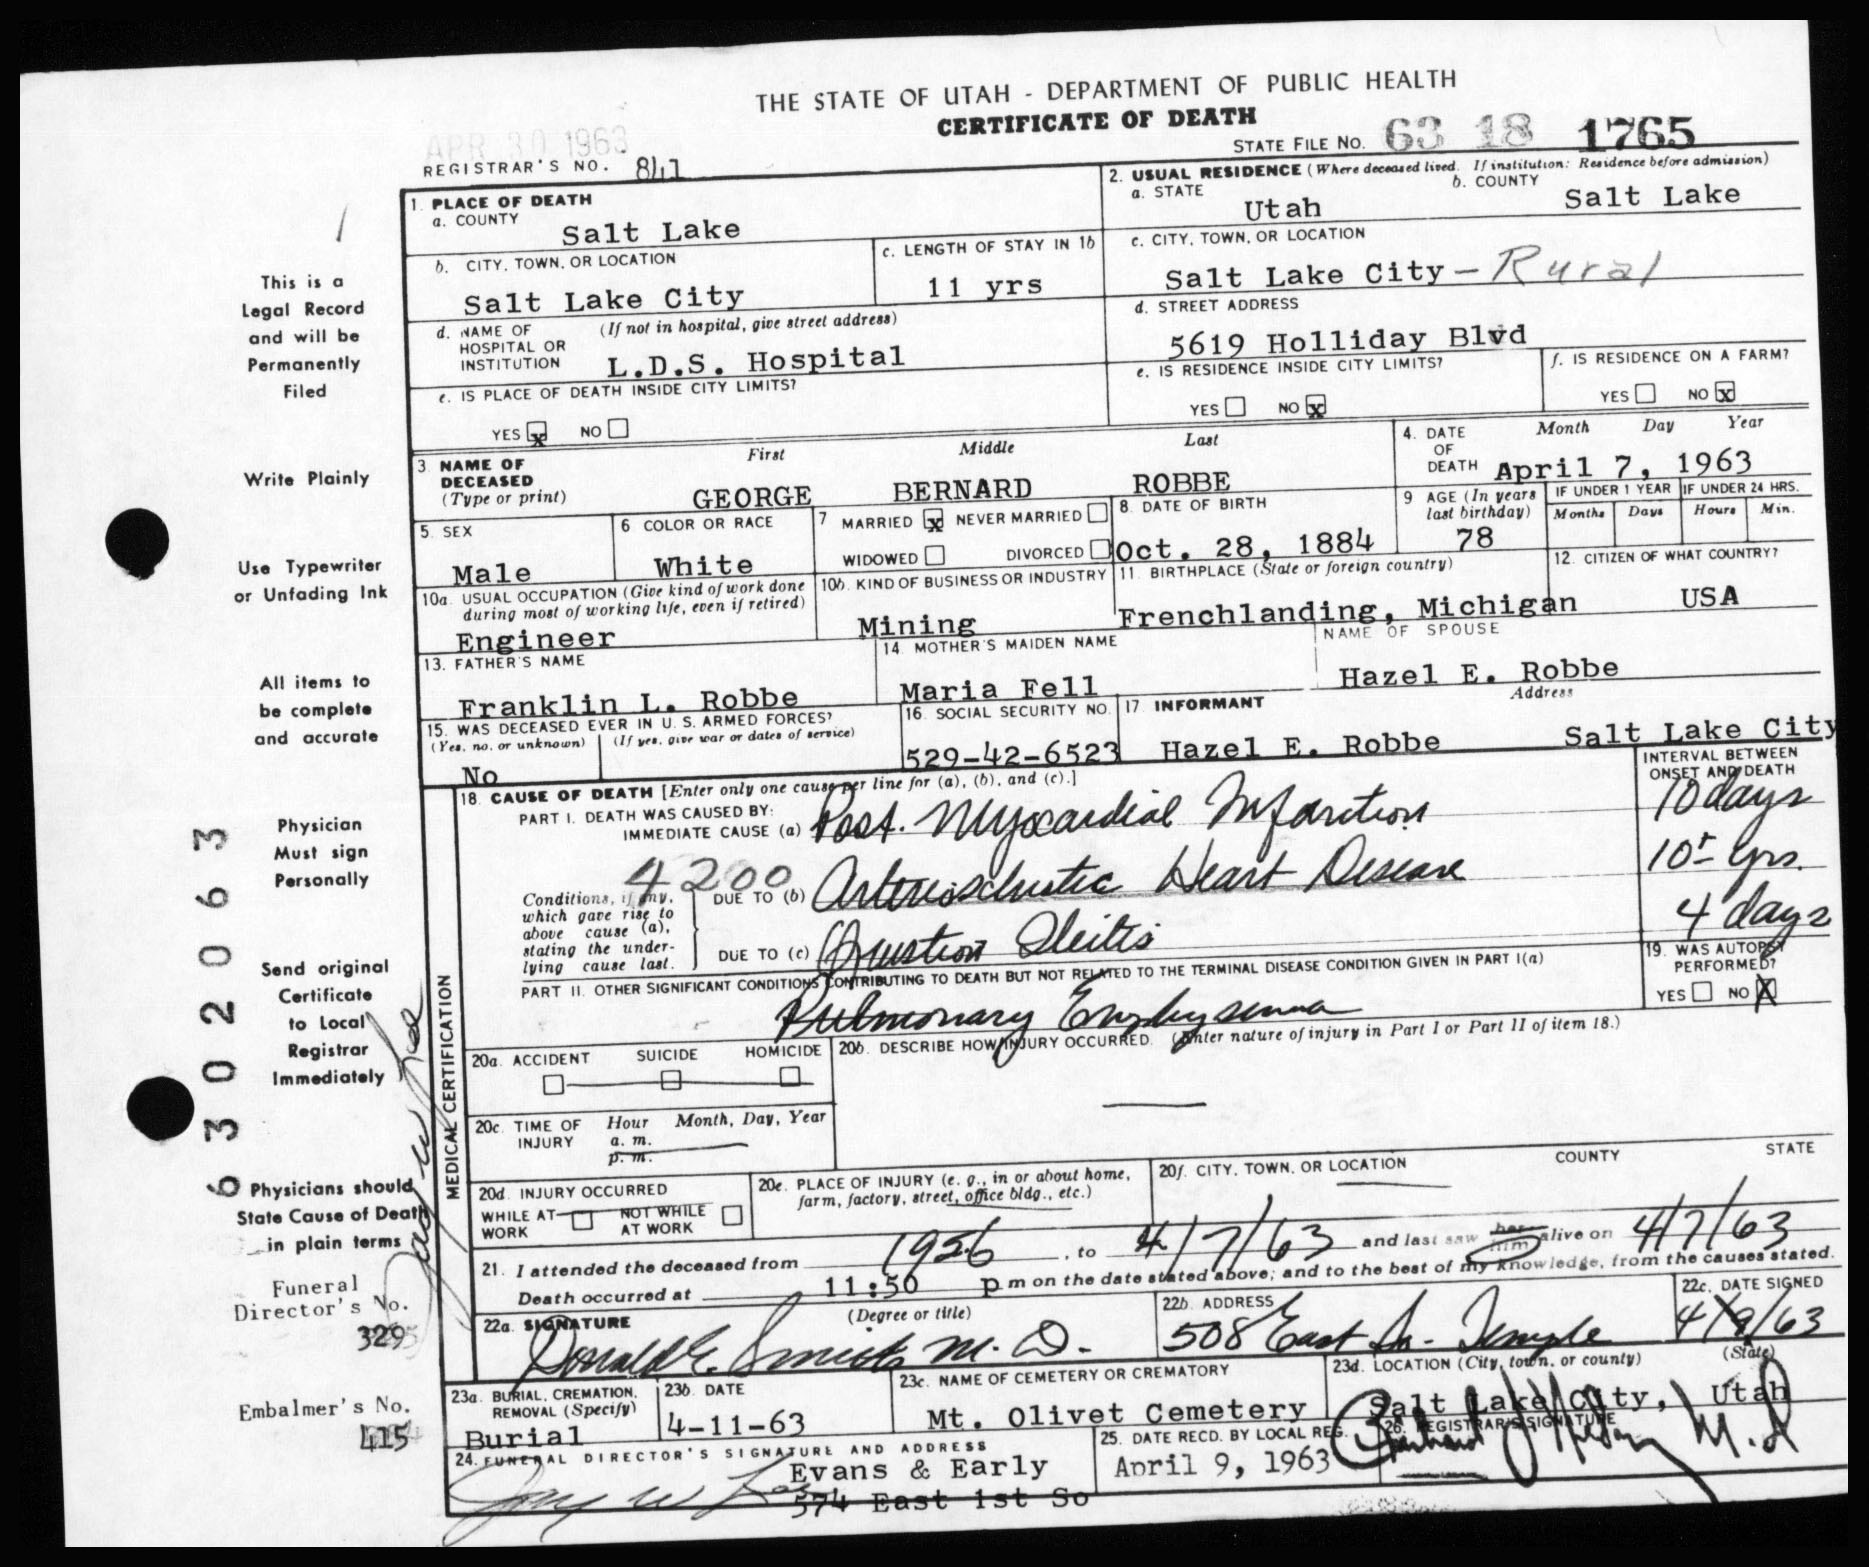 THE STATE OF UTAH - DEPARTMENT OF PUBLIC HEALTH
CERTIFICATE OF DEATH
APR 30 1963
STATE FILE NO. 63 18 1765
REGISTRAR'S NO. 841
1. PLACE OF DEATH
a. COUNTY
Salt Lake
2. USUAL RESIDENCE (Where deceased lived. If institution: Residence before admission)
a. STATE
Utah
b. COUNTY
Salt Lake
b. CITY, TOWN, OR LOCATION
Salt Lake City
c. LENGTH OF STAY IN 1b
11 yrs
c. CITY, TOWN, OR LOCATION
Salt Lake City - Rural
d. NAME OF HOSPITAL OR INSTITUTION
(If not in hospital, give street address)
L.D.S. Hospital
d. STREET ADDRESS
5619 Holliday Blvd
e. IS PLACE OF DEATH INSIDE CITY LIMITS?
YES x NO
e. IS RESIDENCE INSIDE CITY LIMITS?
YES NO x
f. IS RESIDENCE ON A FARM?
YES NO x
3. NAME OF DECEASED
(Type or print)
First Middle Last
GEORGE BERNARD ROBBE
4. DATE OF DEATH
Month Day Year
April 7, 1963
5. SEX
Male
6 COLOR OR RACE
White
7 MARRIED x NEVER MARRIED
WIDOWED DIVORCED
8. DATE OF BIRTH
Oct. 28, 1884
9 AGE (In years last birthday)
78
IF UNDER 1 YEAR
Months Days
IF UNDER 24 HRS.
Hours Min.
10a. USUAL OCCUPATION (Give kind of work done during most of working life, even if retired)
Engineer
10b. KIND OF BUSINESS OR INDUSTRY
Mining
11. BIRTHPLACE (State or foreign country)
Frenchlanding, Michigan
12. CITIZEN OF WHAT COUNTRY?
USA
13. FATHER'S NAME
Franklin L. Robbe
14. MOTHER'S MAIDEN NAME
Maria Fell
NAME OF SPOUSE
Hazel E. Robbe
15. WAS DECEASED EVER IN U. S. ARMED FORCES?
(Yes, no, or unknown) (If yes, give war or dates of service)
No
16. SOCIAL SECURITY NO.
529-42-6523
17 INFORMANT
Hazel E. Robbe
Address
Salt Lake City
18. CAUSE OF DEATH [Enter only one cause per line for (a), (b), and (c).]
INTERVAL BETWEEN ONSET AND DEATH
PART I. DEATH WAS CAUSED BY:
IMMEDIATE CAUSE (a) Post. Myocardial Infarction
10 days
4200
Conditions, if any, which gave rise to above cause (a), stating the underlying cause last.
DUE TO (b) Arteriosclrotic Heart Disease
10± yrs.
DUE TO (c) Ileitis
4 days
PART II. OTHER SIGNIFICANT CONDITIONS CONTRIBUTING TO DEATH BUT NOT RELATED TO THE TERMINAL DISEASE CONDITION GIVEN IN PART I(a)
Pulmonary Emphysema
19. WAS AUTOPSY PERFORMED?
YES NO X
20a. ACCIDENT SUICIDE HOMICIDE
20b. DESCRIBE HOW INJURY OCCURRED. (Enter nature of injury in Part I or Part II of item 18.)
20c. TIME OF INJURY
Hour Month, Day, Year
a. m.
p. m.
20d. INJURY OCCURRED
WHILE AT WORK NOT WHILE AT WORK
20e. PLACE OF INJURY (e. g., in or about home, farm, factory, street, office bldg., etc.)
20f. CITY, TOWN, OR LOCATION COUNTY STATE
21. I attended the deceased from 1956, to 4/7/63 and last saw her him alive on 4/7/63
Death occurred at 11:50 p m on the date stated above; and to the best of my knowledge, from the causes stated.
22a. SIGNATURE
(Degree or title)
Donald E. Smith M. D.
22b. ADDRESS
508 East So. Temple
22c. DATE SIGNED
4/9/63
23a. BURIAL, CREMATION, REMOVAL (Specify)
Burial
23b. DATE
4-11-63
23c. NAME OF CEMETERY OR CREMATORY
Mt. Olivet Cemetery
23d. LOCATION (City, town, or county) (State)
Salt Lake City, Utah
24. FUNERAL DIRECTOR'S SIGNATURE AND ADDRESS
Evans & Early
574 East 1st So
25. DATE RECD. BY LOCAL REG.
April 9, 1963
26. REGISTRAR'S SIGNATURE
M.D
MEDICAL CERTIFICATION
This is a
Legal Record
and will be
Permanently
Filed
Write Plainly
Use Typewriter
or Unfading Ink
All items to
be complete
and accurate
Physician
Must sign
Personally
Send original
Certificate
to Local
Registrar
Immediately
Physicians should
State Cause of Death
in plain terms
Funeral
Director's No.
329
Embalmer's No.
415
6302063